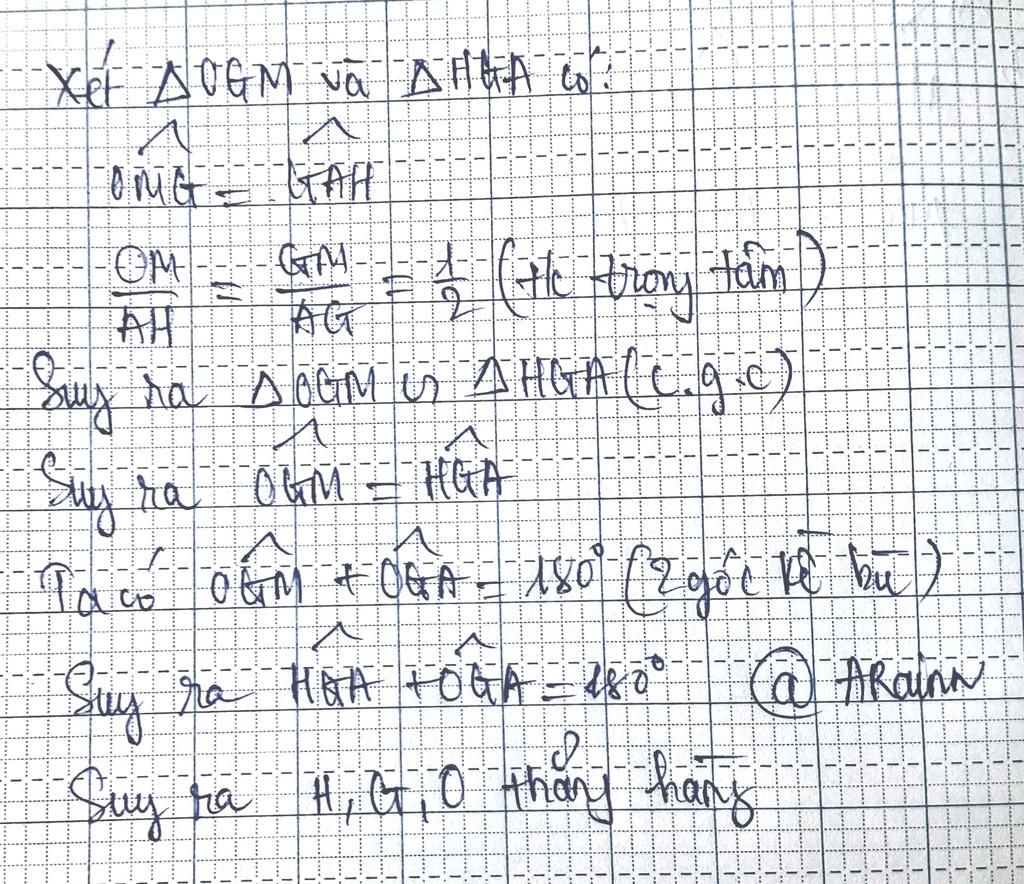 Xét ΔOGM và ΔHGA có:
∠OMG = ∠GAH
OM/AH = GM/AG = 1/2 (t/c trọng tâm)
Suy ra ΔOGM ∽ ΔHGA (c.g.c)
Suy ra ∠OGM = ∠HGA
Ta có ∠OGM + ∠OGA = 180° (2 góc kề bù)
Suy ra ∠HGA + ∠OGA = 180° @ ARainN
Suy ra H, G, O thẳng hàng